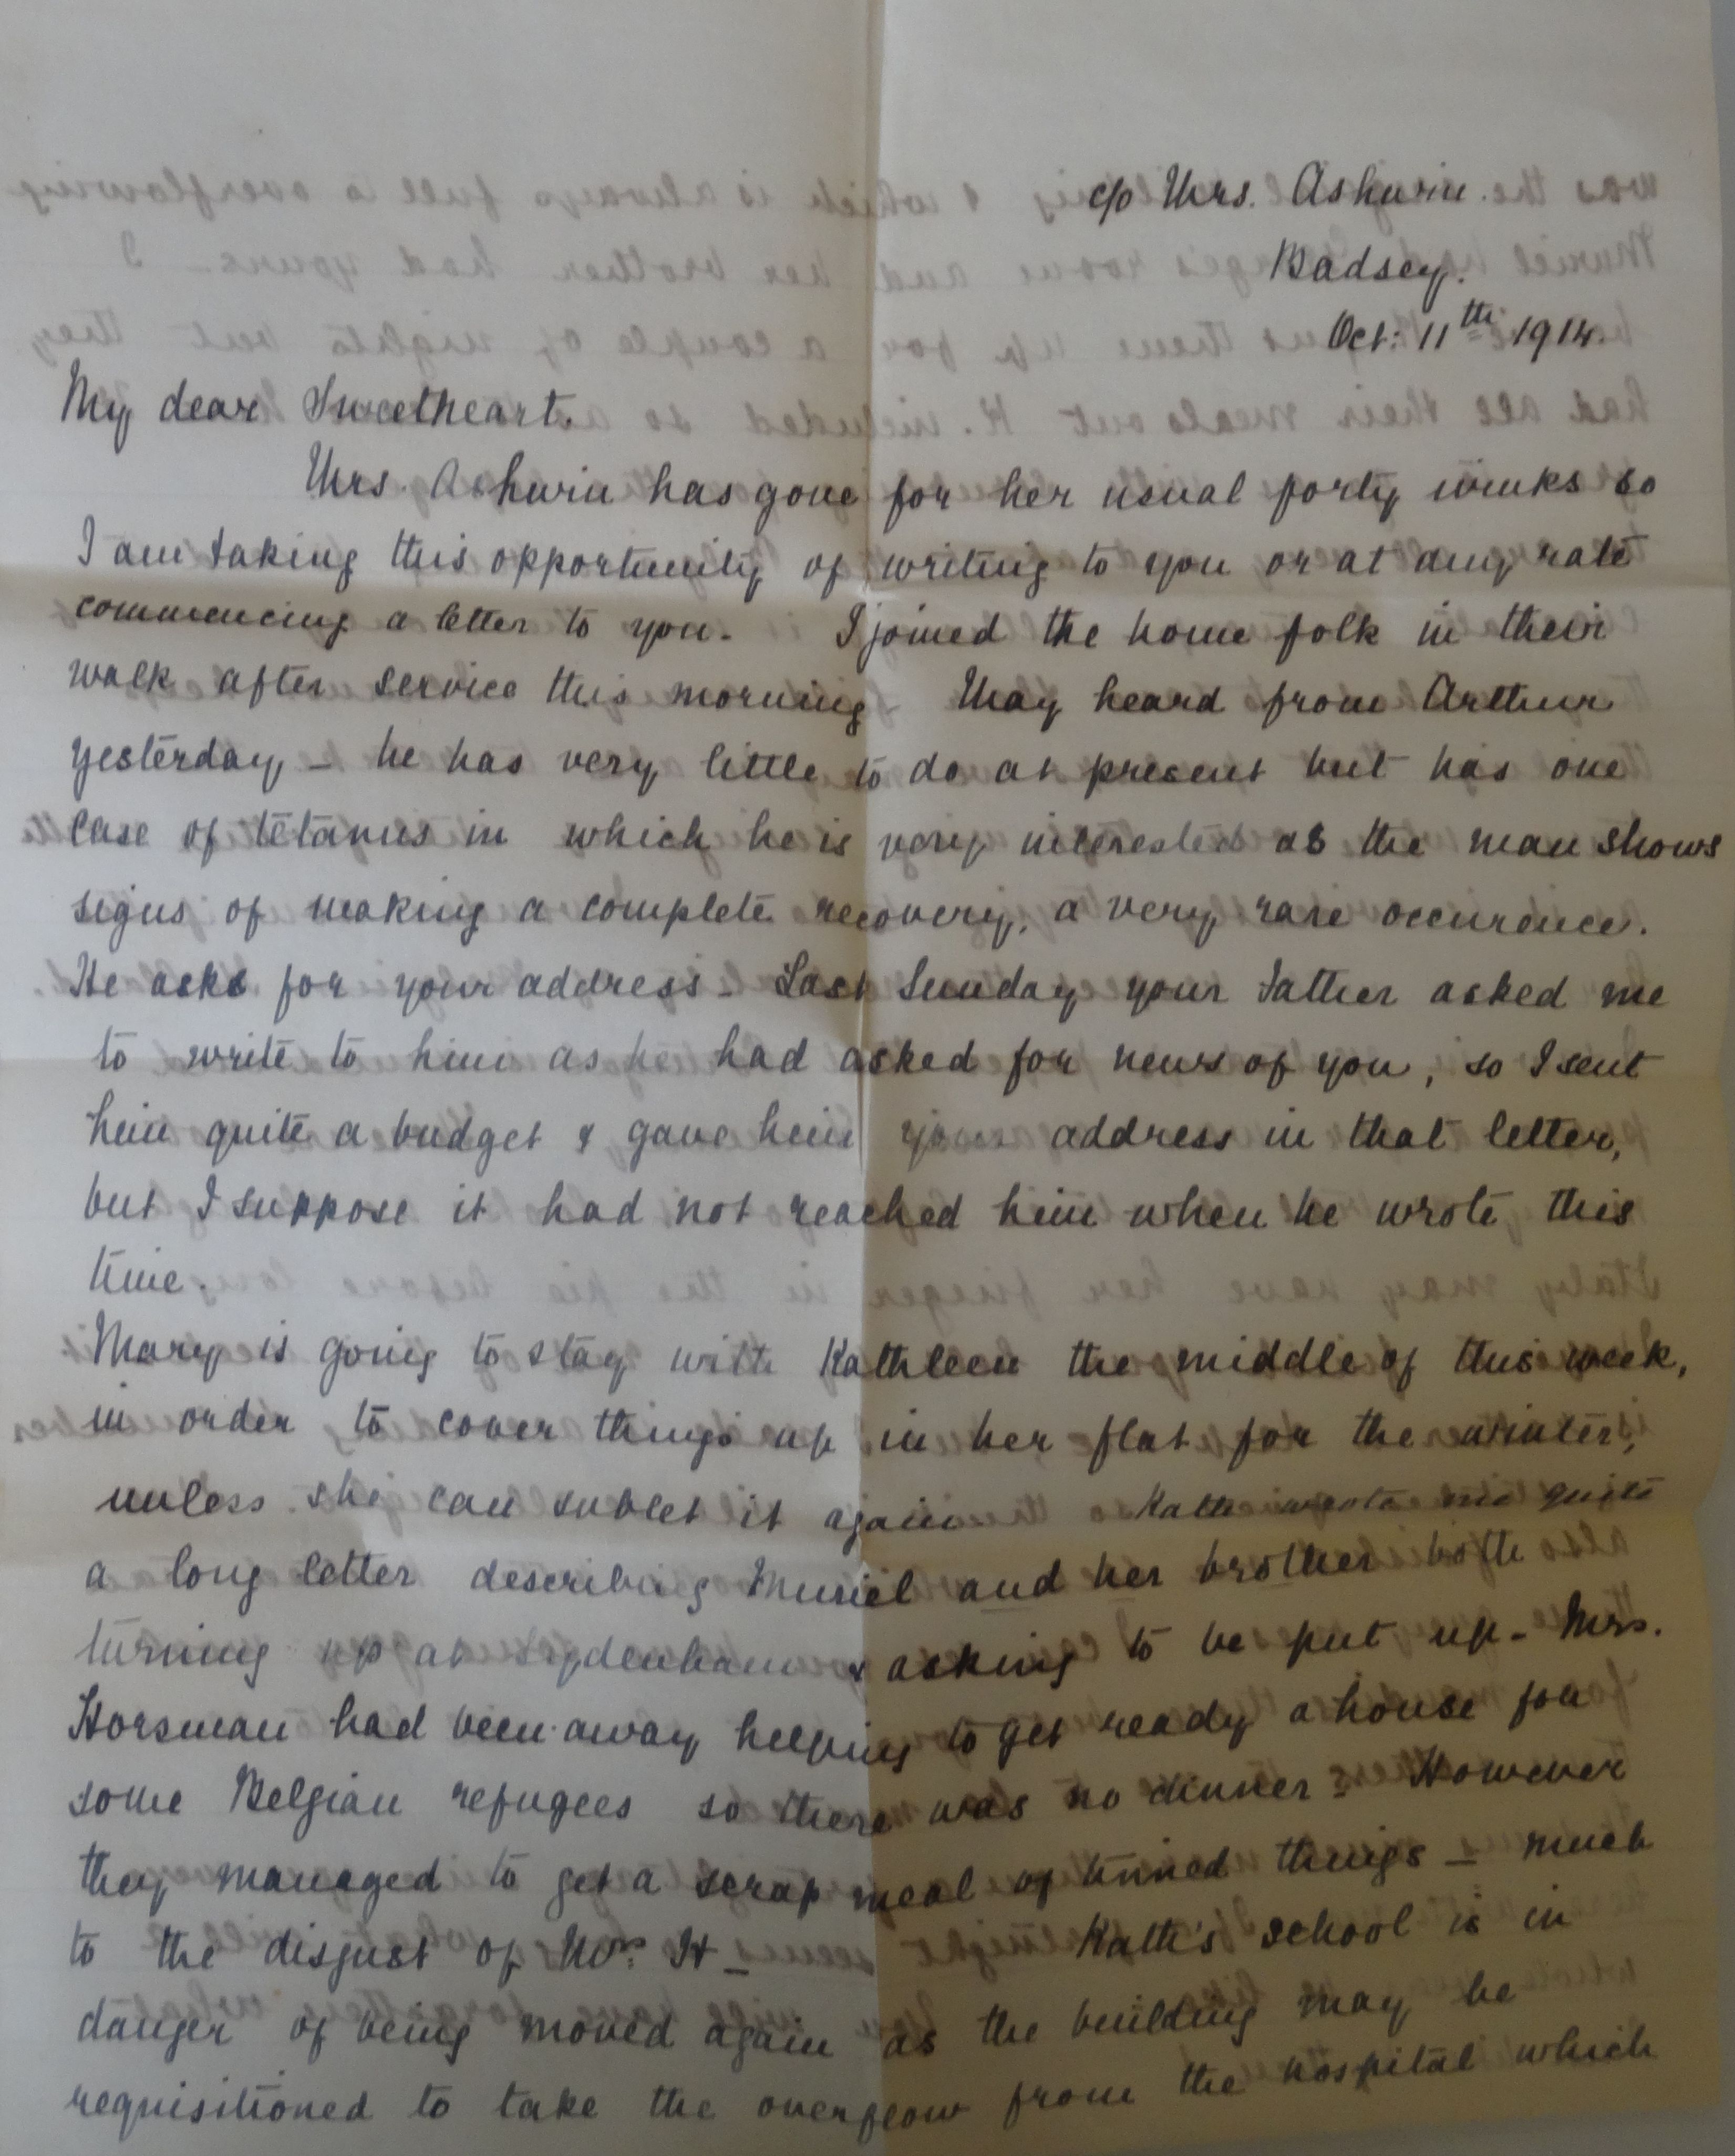 c/o Mrs. Ashwin.
Badsey.
Oct: 11th 1914.
My dear Sweetheart.
Mrs. Ashwin has gone for her usual forty winks so
I am taking this opportunity of writing to you or at any rate
commencing a letter to you. I joined the home folk in their
walk after service this morning May heard from Arthur
yesterday – he has very little to do at present but has one
case of tetanus in which he is very interested as the man shows
signs of making a complete recovery, a very rare occurence.
He asks for your address – Last Sunday your Father asked me
to write to him as he had asked for news of you, so I sent
him quite a budget & gave him your address in that letter,
but I suppose it had not reached him when he wrote this
time.
Mary is going to stay with Kathleen the middle of this week,
in order to cover things up in her flat for the winter,
unless she can sublet it again Kath wrote me quite
a long letter describing Muriel and her brother both
turning up at Sydenham & asking to be put up – Mrs.
Horsman had been away helping to get ready a house for
some Belgian refugees so there was no dinner. However
they managed to get a scrap meal of tinned things – much
to the disgust of Mr. H – Kath's school is in
danger of being moved again as the building may be
requisitioned to take the overflow from the hospital which